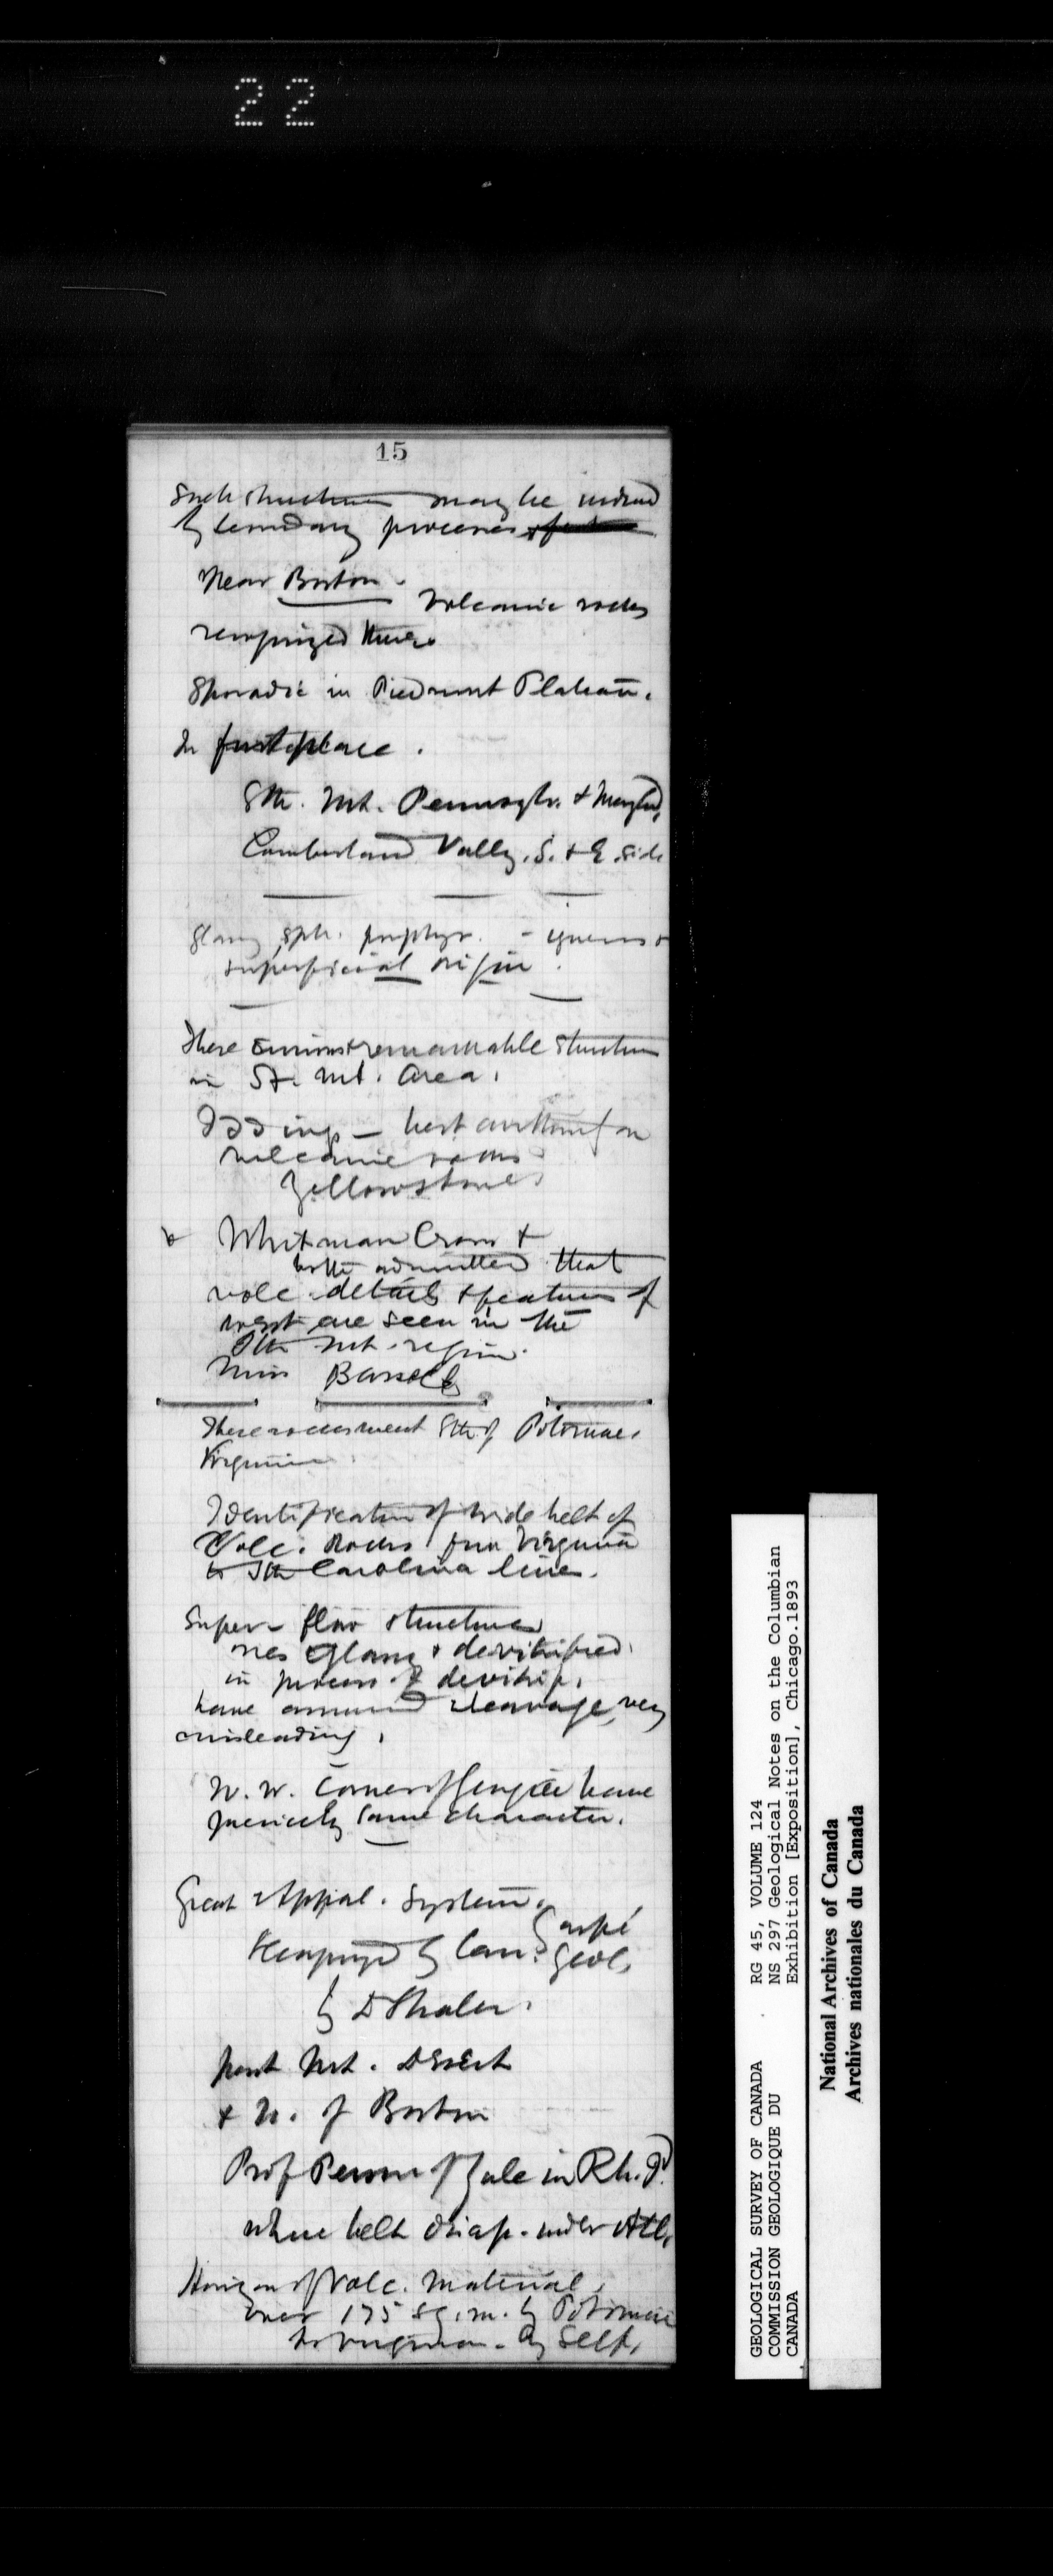 22
15
Such structures may be
by secondary processes
Near Boston.
Volcanic rocks
recognized there.
Sporadic in Piedmont Plateau.
In first place.
Sth. Mt. Pennsylv. & Maryland,
Cumberland Valley. S. & E. side
Glassy, sph. porphyr. - igneous &
superficial origin.
These remarkable structures
in St. Mt. area.
Iddings - best authority on
volcanic rocks
Yellowstone
Whitman Cross &
both admitted that
volc. details & features of
west are seen in the
Sth Mt. region.
Miss
These rocks Sth of Potomac,
Virginia.
Identification of wide belt of
Volc. Rocks from Virginia
to Sth Carolina line.
Super- flow structures
Glassy & devitrified.
in process of devitrif.
have assumed cleavage, very
misleading.
N. W. corner of Georgia have
precisely same character.
Great Appal. System.
Recognized by Can. Gaspé
Geol.
by D Shaler.
past Mt. Desert
& N. of Boston
Prof of Yale in Rh. Id.
where belt disap. under Atl.
Horizon of Volc. Material,
over 175 sq. m. by Potomac
to Virginia. By Self.
GEOLOGICAL SURVEY OF CANADA
COMMISSION GEOLOGIQUE DU
CANADA
RG 45, VOLUME 124
NS 297 Geological Notes on the Columbian
Exhibition [Exposition], Chicago.1893
National Archives of Canada
Archives nationales du Canada